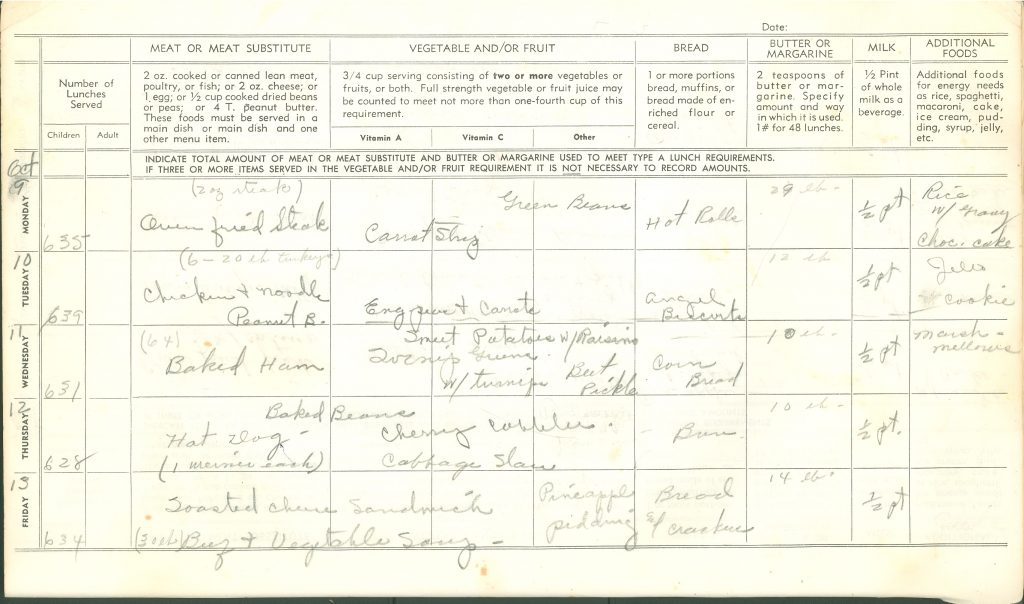 Date:
MEAT OR MEAT SUBSTITUTE
VEGETABLE AND/OR FRUIT
BREAD
BUTTER OR MARGARINE
MILK
ADDITIONAL FOODS
Number of
Lunches
Served
Children
Adult
2 oz. cooked or canned lean meat,
poultry, or fish; or 2 oz. cheese; or
1 egg; or ½ cup cooked dried beans
or peas; or 4 T. peanut butter.
These foods must be served in a
main dish or main dish and one
other menu item.
3/4 cup serving consisting of two or more vegetables or
fruits, or both. Full strength vegetable or fruit juice may
be counted to meet not more than one-fourth cup of this
requirement.
Vitamin A
Vitamin C
Other
1 or more portions
bread, muffins, or
bread made of en-
riched flour or
cereal.
2 teaspoons of
butter or mar-
garine. Specify
amount and way
in which it is used.
1# for 48 lunches.
½ Pint
of whole
milk as a
beverage.
Additional foods
for energy needs
as rice, spaghetti,
macaroni, cake,
ice cream, pud-
ding, syrup, jelly,
etc.
INDICATE TOTAL AMOUNT OF MEAT OR MEAT SUBSTITUTE AND BUTTER OR MARGARINE USED TO MEET TYPE A LUNCH REQUIREMENTS.
IF THREE OR MORE ITEMS SERVED IN THE VEGETABLE AND/OR FRUIT REQUIREMENT IT IS NOT NECESSARY TO RECORD AMOUNTS.
Oct
9
MONDAY
635
(2 oz steak)
Oven fried Steak
Green Beans
Carrot Strip
Hot Rolls
29 lb
½ pt
Rice
w/ Gravy
Choc. cake
10
TUESDAY
639
(6 - 20 lb turkeys)
Chicken & noodle
Peanut B.
Eng peas & Carrots
Biscuits
12 lb
½ pt
Jello
cookie
11
WEDNESDAY
651
(64)
Baked Ham
Sweet Potatoes w/ Raisins
Turnip Greens
w/ turnips
Beet
Pickle
Corn
Bread
10 lb
½ pt
Marsh-
mellows
12
THURSDAY
628
Baked Beans
Hot Dog
(1 weiner each)
Cherry cobbler.
Cabbage Slaw
Bun
10 lb
½ pt.
13
FRIDAY
634
Toasted cheese Sandwich
Beef & Vegetable Soup
Pineapple
pidding
Bread
crackers
14 lb
½ pt